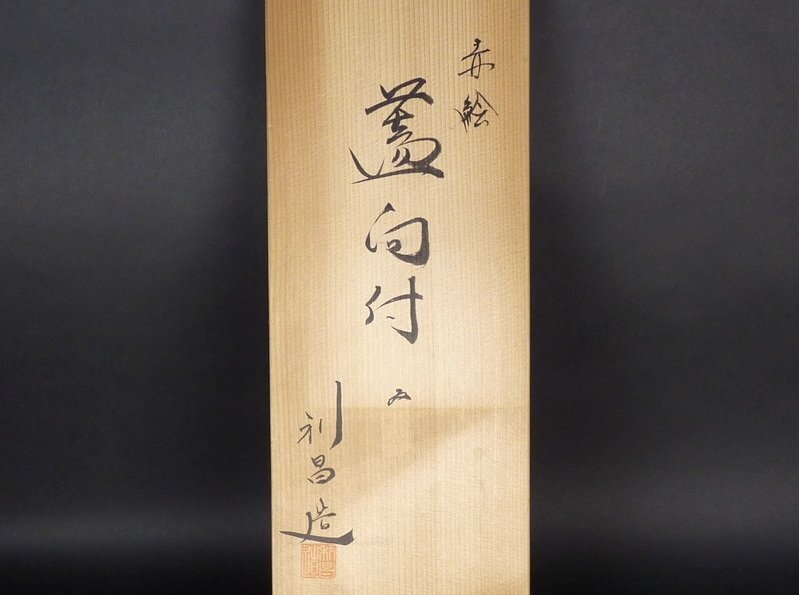 赤絵
蓋向付
五
利昌造